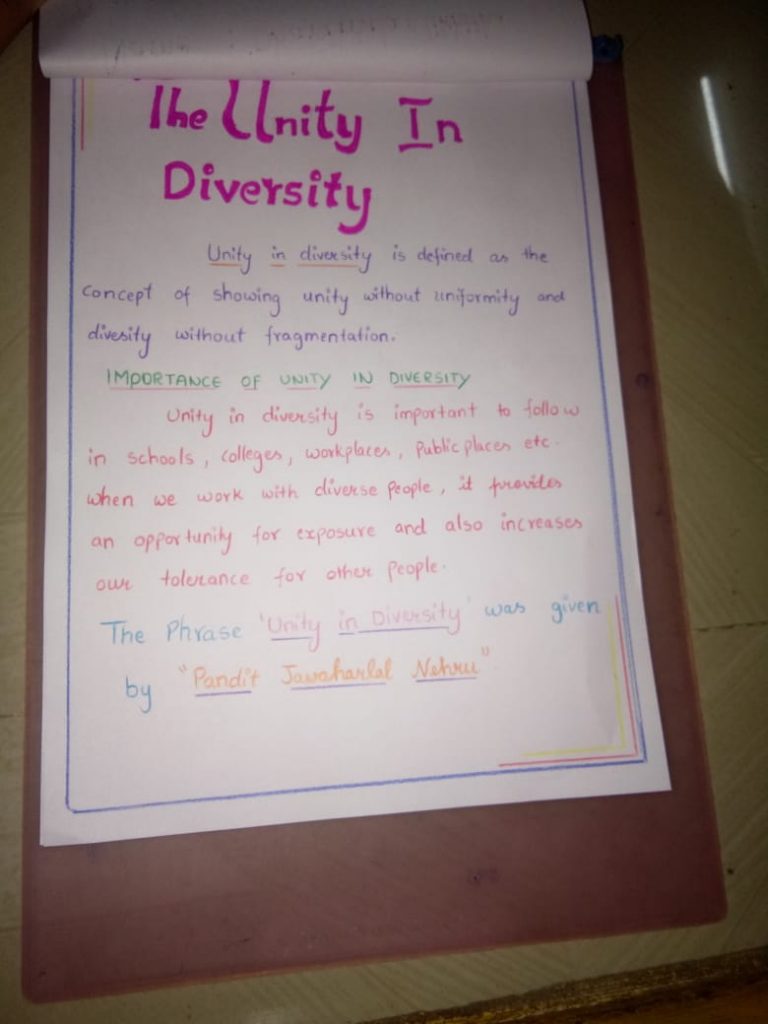 The Unity In
Diversity
Unity in diversity is defined as the
concept of showing unity without uniformity and
divesity without fragmentation.
IMPORTANCE OF UNITY IN DIVERSITY
Unity in diversity is important to follow
in schools, colleges, workplaces, Public places etc.
when we work with diverse people, it provides
an opportunity for exposure and also increases
our tolerance for other people.
The Phrase 'Unity in Diversity' was given
by "Pandit Jawaharlal Nehru".